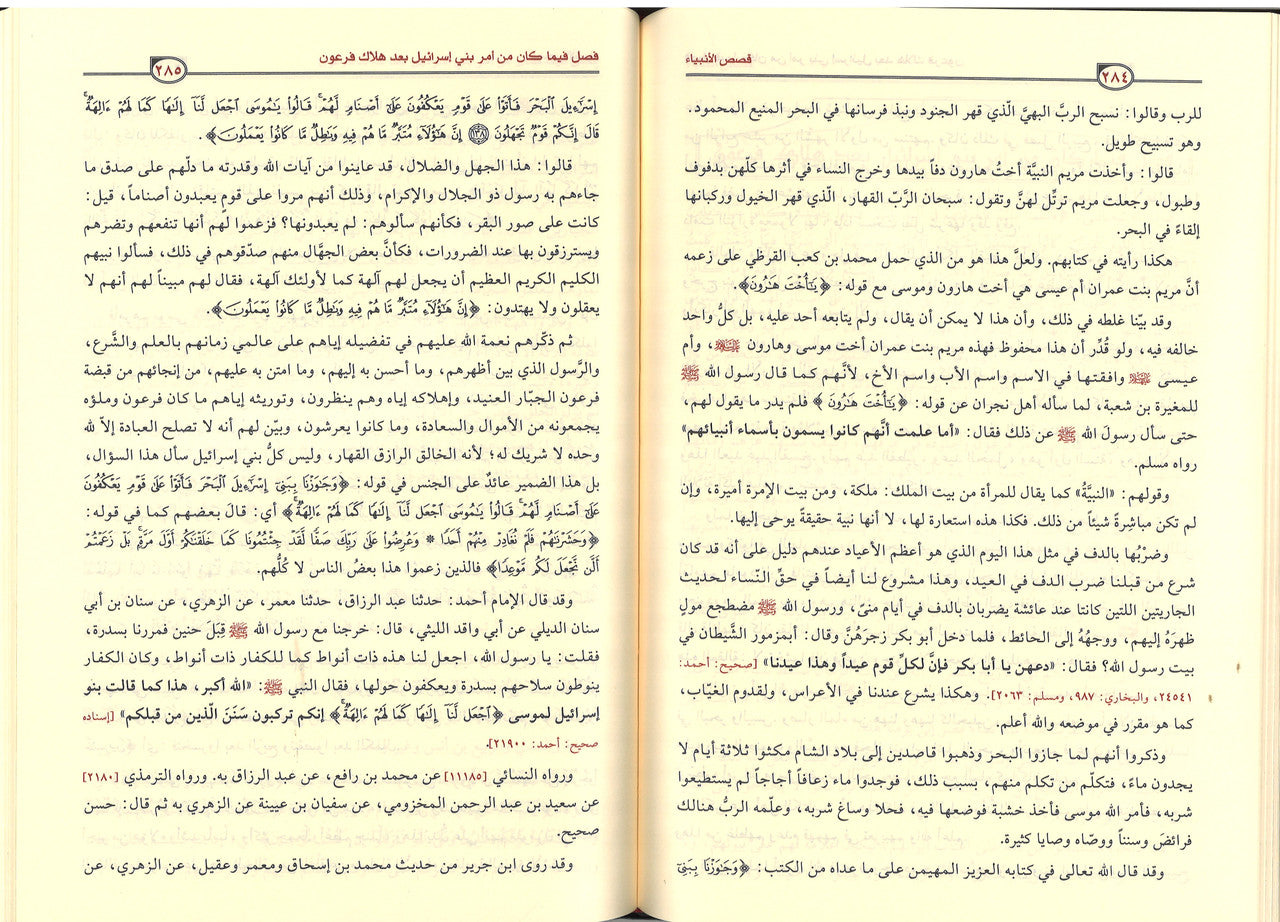 قصص الأنبياء
٢٨٤
للرب وقالوا: نسبح الربَّ البهيَّ الّذي قهر الجنود ونبذ فرسانها في البحر المنيع المحمود.
وهو تسبيح طويل.
قالوا: وأخذت مريم النبيَّة أختُ هارون دفاً بيدها وخرج النساء في أثرها كلّهن بدفوف
وطبول، وجعلت مريم ترتِّل لهنَّ وتقول: سبحان الرَّبّ القهار، الّذي قهر الخيول وركبانها
إلقاءً في البحر.
هكذا رأيته في كتابهم. ولعلَّ هذا هو من الذي حمل محمد بن كعب القرظي على زعمه
أنَّ مريم بنت عمران أم عيسى هي أخت هارون وموسى مع قوله: ﴿يَٰٓأُخْتَ هَٰرُونَ﴾.
وقد بيّنا غلطه في ذلك، وأن هذا لا يمكن أن يقال، ولم يتابعه أحد عليه، بل كلُّ واحد
خالفه فيه، ولو قُدِّر أن هذا محفوظ فهذه مريم بنت عمران أخت موسى وهارون ﷺ، وأم
عيسى ﷺ وافقتها في الاسم واسم الأب واسم الأخ، لأنَّهم كما قال رسول الله ﷺ
للمغيرة بن شعبة، لما سأله أهل نجران عن قوله: ﴿يَٰٓأُخْتَ هَٰرُونَ﴾ فلم يدر ما يقول لهم،
حتى سأل رسولَ الله ﷺ عن ذلك فقال: «أما علمت أنَّهم كانوا يسمون بأسماء أنبيائهم»
رواه مسلم.
وقولهم: «النبيَّةُ» كما يقال للمرأة من بيت الملك: ملكة، ومن بيت الإمرة أميرة، وإن
لم تكن مباشِرةً شيئاً من ذلك. فكذا هذه استعارة لها، لا أنها نبية حقيقةً يوحى إليها.
وضرْبُها بالدف في مثل هذا اليوم الذي هو أعظم الأعياد عندهم دليل على أنه قد كان
شرع من قبلنا ضرب الدف في العيد، وهذا مشروع لنا أيضاً في حقِّ النّساء لحديث
الجاريتين اللتين كانتا عند عائشة يضربان بالدف في أيام منىً، ورسول الله ﷺ مضطجع مولٍ
ظهرَهُ إليهم، ووجههُ إلى الحائط، فلما دخل أبو بكر زجرَهُنَّ وقال: أبمزمور الشَّيطان في
بيت رسول الله؟ فقال: «دعهن يا أبا بكر فإنَّ لكلِّ قوم عيداً وهذا عيدنا» [صحيح: أحمد:
٢٤٥٤١، والبخاري: ٩٨٧، ومسلم: ٢٠٦٣]. وهكذا يشرع عندنا في الأعراس، ولقدوم الغيّاب،
كما هو مقرر في موضعه والله أعلم.
وذكروا أنهم لما جازوا البحر وذهبوا قاصدين إلى بلاد الشام مكثوا ثلاثة أيام لا
يجدون ماءً، فتكلّم من تكلم منهم، بسبب ذلك، فوجدوا ماء زعافاً أجاجاً لم يستطيعوا
شربه، فأمر الله موسى فأخذ خشبة فوضعها فيه، فحلا وساغ شربه، وعلّمه الربُّ هنالك
فرائضَ وسنناً ووصّاه وصايا كثيرة.
وقد قال الله تعالى في كتابه العزيز المهيمن على ما عداه من الكتب: ﴿وَجَٰوَزْنَا بِبَنِىٓ
فصل فيما كان من أمر بني إسرائيل بعد هلاك فرعون
٢٨٥
إِسْرَٰٓءِيلَ ٱلْبَحْرَ فَأَتَوْا۟ عَلَىٰ قَوْمٍ يَعْكُفُونَ عَلَىٰٓ أَصْنَامٍ لَّهُمْ ۚ قَالُوا۟ يَٰمُوسَى ٱجْعَل لَّنَآ إِلَٰهًا كَمَا لَهُمْ ءَالِهَةٌ ۚ
قَالَ إِنَّكُمْ قَوْمٌ تَجْهَلُونَ ١٣٨ إِنَّ هَٰٓؤُلَآءِ مُتَبَّرٌ مَّا هُمْ فِيهِ وَبَٰطِلٌ مَّا كَانُوا۟ يَعْمَلُونَ﴾.
قالوا: هذا الجهل والضلال، قد عاينوا من آيات الله وقدرته ما دلّهم على صدق ما
جاءهم به رسول ذو الجلال والإكرام، وذلك أنهم مروا على قوم يعبدون أصناماً، قيل:
كانت على صور البقر، فكأنهم سألوهم: لم يعبدونها؟ فزعموا لهم أنها تنفعهم وتضرهم
ويسترزقون بها عند الضرورات، فكأنَّ بعض الجهَّال منهم صدّقوهم في ذلك، فسألوا نبيهم
الكليم الكريم العظيم أن يجعل لهم آلهة كما لأولئك آلهة، فقال لهم مبيناً لهم أنهم لا
يعقلون ولا يهتدون: ﴿إِنَّ هَٰٓؤُلَآءِ مُتَبَّرٌ مَّا هُمْ فِيهِ وَبَٰطِلٌ مَّا كَانُوا۟ يَعْمَلُونَ﴾.
ثم ذكّرهم نعمة الله عليهم في تفضيله إياهم على عالمي زمانهم بالعلم والشَّرع،
والرَّسول الذي بين أظهرهم، وما أحسن به إليهم، وما امتن به عليهم، من إنجائهم من قبضة
فرعون الجبّار العنيد، وإهلاكه إياه وهم ينظرون، وتوريثه إياهم ما كان فرعون وملؤه
يجمعونه من الأموال والسعادة، وما كانوا يعرشون، وبيّن لهم أنه لا تصلح العبادة إلاّ لله
وحده لا شريك له؛ لأنه الخالق الرازق القهار، وليس كلُّ بني إسرائيل سأل هذا السؤال،
بل هذا الضمير عائدٌ على الجنس في قوله: ﴿وَجَٰوَزْنَا بِبَنِىٓ إِسْرَٰٓءِيلَ ٱلْبَحْرَ فَأَتَوْا۟ عَلَىٰ قَوْمٍ يَعْكُفُونَ
عَلَىٰٓ أَصْنَامٍ لَّهُمْ ۚ قَالُوا۟ يَٰمُوسَى ٱجْعَل لَّنَآ إِلَٰهًا كَمَا لَهُمْ ءَالِهَةٌ﴾ أي: قالَ بعضهم كما في قوله:
﴿وَحَشَرْنَٰهُمْ فَلَمْ نُغَادِرْ مِنْهُمْ أَحَدًا * وَعُرِضُوا۟ عَلَىٰ رَبِّكَ صَفًّا لَّقَدْ جِئْتُمُونَا كَمَا خَلَقْنَٰكُمْ أَوَّلَ مَرَّةٍۭ ۚ بَلْ زَعَمْتُمْ
أَلَّن نَّجْعَلَ لَكُم مَّوْعِدًا﴾ فالذين زعموا هذا بعضُ الناس لا كُلُّهم.
وقد قال الإمام أحمد: حدثنا عبد الرزاق، حدثنا معمر، عن الزهري، عن سنان بن أبي
سنان الديلي عن أبي واقد الليثي، قال: خرجنا مع رسول الله ﷺ قِبَلَ حنين فمررنا بسدرة،
فقلت: يا رسول الله، اجعل لنا هذه ذات أنواط كما للكفار ذات أنواط، وكان الكفار
ينوطون سلاحهم بسدرة ويعكفون حولها، فقال النبي ﷺ: «الله أكبر، هذا كما قالت بنو
إسرائيل لموسى ﴿ٱجْعَل لَّنَآ إِلَٰهًا كَمَا لَهُمْ ءَالِهَةٌ ۚ﴾ إنكم تركبون سَنَنَ الّذين من قبلكم» [إسناده
صحيح: أحمد: ٢١٩٠٠].
ورواه النسائي [١١١٨٥] عن محمد بن رافع، عن عبد الرزاق به. ورواه الترمذي [٢١٨٠]
عن سعيد بن عبد الرحمن المخزومي، عن سفيان بن عيينة عن الزهري به ثم قال: حسن
صحيح.
وقد روى ابن جرير من حديث محمد بن إسحاق ومعمر وعقيل، عن الزهري، عن